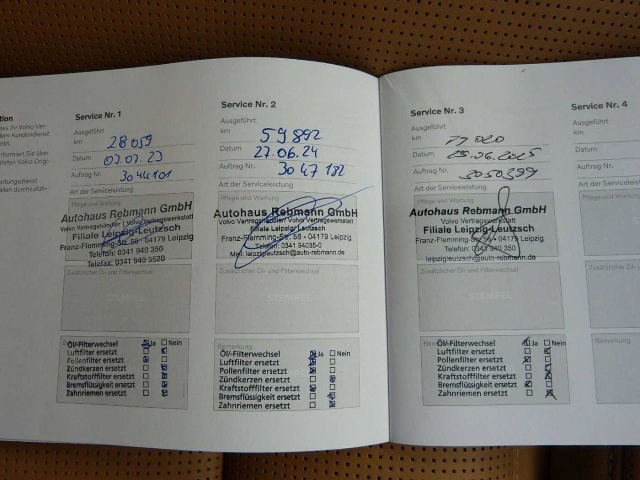 tion
Service Nr. 1
Ausgeführt
km 28059
Datum 07.07.23
Auftrag Nr. 3044101
Art der Serviceleistung
Pflege und Wartung
Autohaus Rebmann GmbH
Volvo Vertragshändler / Volvo Vertragswerkstatt
Filiale Leipzig-Leutzsch
Franz-Flemming-Str. 56 - 04179 Leipzig
Telefon: 0341 940 350
Telefax: 0341 940 3520
Zusätzlicher Öl- und Filterwechsel
Öl/-Filterwechsel Ja Nein
Luftfilter ersetzt
Pollenfilter ersetzt
Zündkerzen ersetzt
Kraftstofffilter ersetzt
Bremsflüssigkeit ersetzt
Zahnriemen ersetzt
Service Nr. 2
Ausgeführt
km 59892
Datum 27.06.24
Auftrag Nr. 3047182
Art der Serviceleistung
Pflege und Wartung
Autohaus Rebmann GmbH
Volvo Vertragshändler/ Volvo Vertragswerkstatt
Filiale Leipzig/ Leutzsch
Franz-Flemming-Str. 56 - 04179 Leipzig
Telefon: 0341 94035-0
Mail: leipzigleutzsch@auto-rebmann.de
Zusätzlicher Öl- und Filterwechsel
STEMPEL
Bemerkung
Öl/-Filterwechsel Ja Nein
Luftfilter ersetzt
Pollenfilter ersetzt
Zündkerzen ersetzt
Kraftstofffilter ersetzt
Bremsflüssigkeit ersetzt
Zahnriemen ersetzt
Service Nr. 3
Ausgeführt
km 77020
Datum 25.06.2025
Auftrag Nr. 3050399
Art der Serviceleistung
Pflege und Wartung
Autohaus Rebmann GmbH
Volvo Vertragshändler / Volvo Vertragswerkstatt
Filiale Leipzig-Leutzsch
Franz-Flemming-Str. 56 - 04179 Leipzig
Telefon: 0341 940 350
leipzigleutzsch@auto-rebmann.de
Zusätzlicher Öl- und Filterwechsel
Öl/-Filterwechsel Ja Nein
Luftfilter ersetzt
Pollenfilter ersetzt
Zündkerzen ersetzt
Kraftstofffilter ersetzt
Bremsflüssigkeit ersetzt
Zahnriemen ersetzt
Service Nr. 4
Ausgeführt
km
Datum
Auftrag Nr.
Art der Serviceleistung
Pflege und Wartung
Zusätzlicher Öl-
Bemerkung